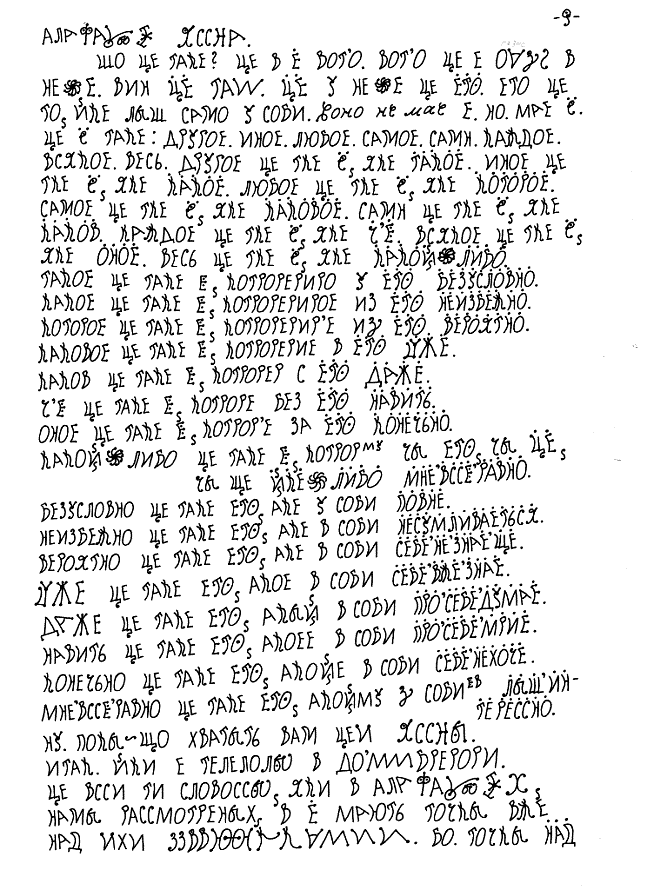 -9-
ЩО ЦЕ ТАКЕ? ЦЕ В Ё ВОТ'О. ВОТ'О ЦЕ Е В
ВИН ЦЕ ЦЕ У ЦЕ ЁТО. ЕТО ЦЕ
ТО, ЙКЕ ЛЫШ САМО У СОБИ. Воно не має Е. НО. МАЕ Ё.
ЦЕ Ё ТАКЕ: ДРУГОЕ. ИНОЕ. ЛЮБОЕ. САМОЕ. САМИ. КАЖДОЕ.
ВСЯКОЕ. ВЕСЬ. ДРУГОЕ ЦЕ ТКЕ Ё, ЯКЕ ТАКОЁ. ИНОЕ ЦЕ
ТКЕ Ё, ЯКЕ КАКОЁ. ЛЮБОЕ ЦЕ ТКЕ Ё, ЯКЕ КОТОРОЕ.
САМОЕ ЦЕ ТКЕ Ё, ЯКЕ КАКОВОЕ. САМИ ЦЕ ТКЕ Ё, ЯКЕ
КАКОВ. КАЖДОЕ ЦЕ ТКЕ Ё, ЯКЕ Ч'Ё. ВСЯКОЕ ЦЕ ТКЕ Ё,
ЯКЕ ОНОЁ. ВЕСЬ ЦЕ ТКЕ Ё, ЯКЕ ЛИБО.
ТАКОЕ ЦЕ ТАКЕ Ё, КОТРОРЕРИРО У ЕТО БЕЗУСЛОВНО.
КАКОЕ ЦЕ ТАКЕ Ё, КОТРОРЕРИРОЕ ИЗ ЕТО НЕИЗБЕЖНО.
КОТОРОЕ ЦЕ ТАКЕ Ё, КОТРОРЕРИР'Е ИЗ ЁТО. ВЕРОЯТНО.
КАКОВОЕ ЦЕ ТАКЕ Ё, КОТРОРЕРИЕ В ЕТО УЖЕ.
КАКОВ ЦЕ ТАКЕ Ё, КОТРОРЕР С ЁТО ДАЖЕ.
Ч'Е ЦЕ ТАКЕ Ё, КОТРОРЕ БЕЗ ЁТО НАВИТЬ.
ОНОЕ ЦЕ ТАКЕ Ё, КОТРОР'Е ЗА ЕТО КОНЕЧЬНО.
ЛИБО ЦЕ ТАКЕ Ё, КОТРОРМУ ЧЫ ЕТО, ЧЫ ЦЕ,
ЧЫ ЩЕ ЛИБО МНЕ'ВССЁ'РАВНО.
БЕЗУСЛОВНО ЦЕ ТАКЕ ЕТО, АКЕ У СОБИ ПОВНЕ.
НЕИЗБЕЖНО ЦЕ ТАКЕ ЕТО, АКЕ В СОБИ НЕСУМЛИВАЕТЬСЯ.
ВЕРОЯТНО ЦЕ ТАКЕ ЕТО, АКЕ В СОБИ СЕБЕ'НЕ'ЗНАЕ'ЩЕ.
УЖЕ ЦЕ ТАКЕ ЕТО, АКОЕ В СОБИ СЕБЕ'ВЖЕ'ЗНАЕ.
ДАЖЕ ЦЕ ТАКЕ ЕТО, АКЫЙ В СОБИ ПРО'СЕБЕ'ДУМАЕ.
НАВИТЬ ЦЕ ТАКЕ ЕТО, АКОЕЕ В СОБИ ПРО'СЕБЕ'МРИЕ.
КОНЕЧЬНО ЦЕ ТАКЕ ЕТО, АКОЙЕ В СОБИ СЕБЕ'НЕХОЧЕ.
МНЕ'ВССЕ'РАВНО ЦЕ ТАКЕ ЕТО, АКОЙМУ У СОБИЕВ ЛЫШ'ИН-
ТЕРЕССНО.
НУ. ПОКЫ~ЩО ХВАТЫТЬ ВАМ ЦЕИ ЯССНЫ.
ИТАК. ЙКИ Е ТЕЛЕЛОЛЬО В
ЦЕ ВССИ ТИ СЛОВОССЫ, ЯКИ В
НАМЫ РАССМОТРЕНЫХ, В Ё МАЮТЬ ТОЧКЫ ВЖЕ
НАД ИХИ ВО. ТОЧКЫ НАД